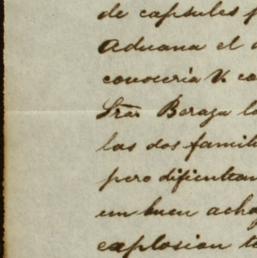 de capsules
Aduana el
conoceria V. co
Sras Beraza la
las dos famili
pero dificultan
un buen acha
explosion t